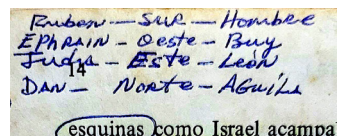 Ruben — Sur — Hombre
EPHRAIN - Oeste - Buy
Judá - Este - León
14
DAN - NORTE - AGUILA
esquinas como Israel acampa